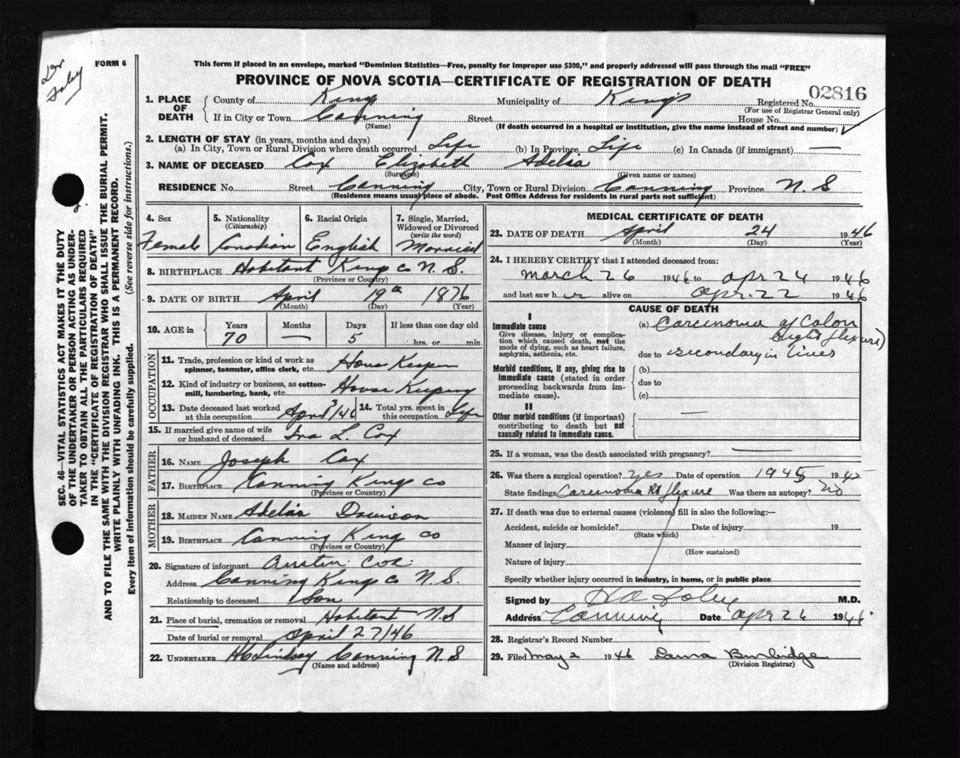 Dr Foley
FORM 6
This form if placed in an envelope, marked "Dominion Statistics—Free, penalty for improper use $300," and properly addressed will pass through the mail "FREE"
PROVINCE OF NOVA SCOTIA—CERTIFICATE OF REGISTRATION OF DEATH
02816
SEC. 46—VITAL STATISTICS ACT MAKES IT THE DUTY
OF THE UNDERTAKER OR PERSON ACTING AS UNDER-
TAKER TO OBTAIN ALL THE PARTICULARS REQUIRED
IN THE "CERTIFICATE OF REGISTRATION OF DEATH"
AND TO FILE THE SAME WITH THE DIVISION REGISTRAR WHO SHALL ISSUE THE BURIAL PERMIT.
WRITE PLAINLY WITH UNFADING INK. THIS IS A PERMANENT RECORD.
Every item of information should be carefully supplied. (See reverse side for instructions.)
1. PLACE OF DEATH
County of Kings Municipality of Kings Registered No.
(For use of Registrar General only)
If in City or Town Canning Street House No.
(Name) (If death occurred in a hospital or institution, give the name instead of street and number)
2. LENGTH OF STAY (in years, months and days)
(a) In City, Town or Rural Division where death occurred Life (b) In Province Life (c) In Canada (if immigrant) —
3. NAME OF DECEASED Cox Elizabeth Adelia
(Surname) (Given name or names)
RESIDENCE No. Street Canning City, Town or Rural Division Canning Province N. S
(Residence means usual place of abode. Post Office Address for residents in rural parts not sufficient)
4. Sex Female
5. Nationality (Citizenship) Canadian
6. Racial Origin English
7. Single, Married, Widowed or Divorced (write the word) Married
8. BIRTHPLACE Habitant King Co N. S.
(Province or Country)
9. DATE OF BIRTH April 19th 1876
(Month) (Day) (Year)
10. AGE in Years 70 Months — Days 5 If less than one day old hrs. or min.
OCCUPATION
11. Trade, profession or kind of work as spinner, teamster, office clerk, etc. House Keeper
12. Kind of industry or business, as cotton-mill, lumbering, bank, etc. House Keeping
13. Date deceased last worked at this occupation April /46
14. Total yrs. spent in this occupation Life
15. If married give name of wife or husband of deceased Ira L. Cox
FATHER
16. Name Joseph Cox
17. Birthplace Canning King Co
(Province or Country)
MOTHER
18. MAIDEN NAME Adelia Davison
19. BIRTHPLACE Canning King Co
(Province or Country)
20. Signature of informant Austin Cox
Address Canning King Co N. S.
Relationship to deceased Son
21. Place of burial, cremation or removal Habitant N.S
Date of burial or removal April 27/46
22. UNDERTAKER H C Lindsay Canning N S
(Name and address)
MEDICAL CERTIFICATE OF DEATH
23. DATE OF DEATH April 24 1946
(Month) (Day) (Year)
24. I HEREBY CERTIFY that I attended deceased from:
March 26 1946 to Apr 24 1946
and last saw her alive on Apr. 22 1946
CAUSE OF DEATH
I
Immediate cause
Give disease, injury or complication which caused death, not the mode of dying, such as heart failure, asphyxia, asthenia, etc.
(a) Carcinoma of Colon
(Right flexure)
due to secondary in liver
Morbid conditions, if any, giving rise to immediate cause (stated in order proceeding backwards from immediate cause).
(b)
due to
(c)
II
Other morbid conditions (if important) contributing to death but not causally related to immediate cause.
25. If a woman, was the death associated with pregnancy? —
26. Was there a surgical operation? Yes Date of operation 1945 1945
State findings Carcinoma Rt flexure Was there an autopsy? no
27. If death was due to external causes (violence) fill in also the following:—
Accident, suicide or homicide? Date of injury 19
(State which)
Manner of injury
(How sustained)
Nature of injury
Specify whether injury occurred in industry, in home, or in public place
Signed by Foley M.D.
Address Canning Date Apr 26 1946
28. Registrar's Record Number
29. Filed May 2 1946 Laura Burbidge
(Division Registrar)